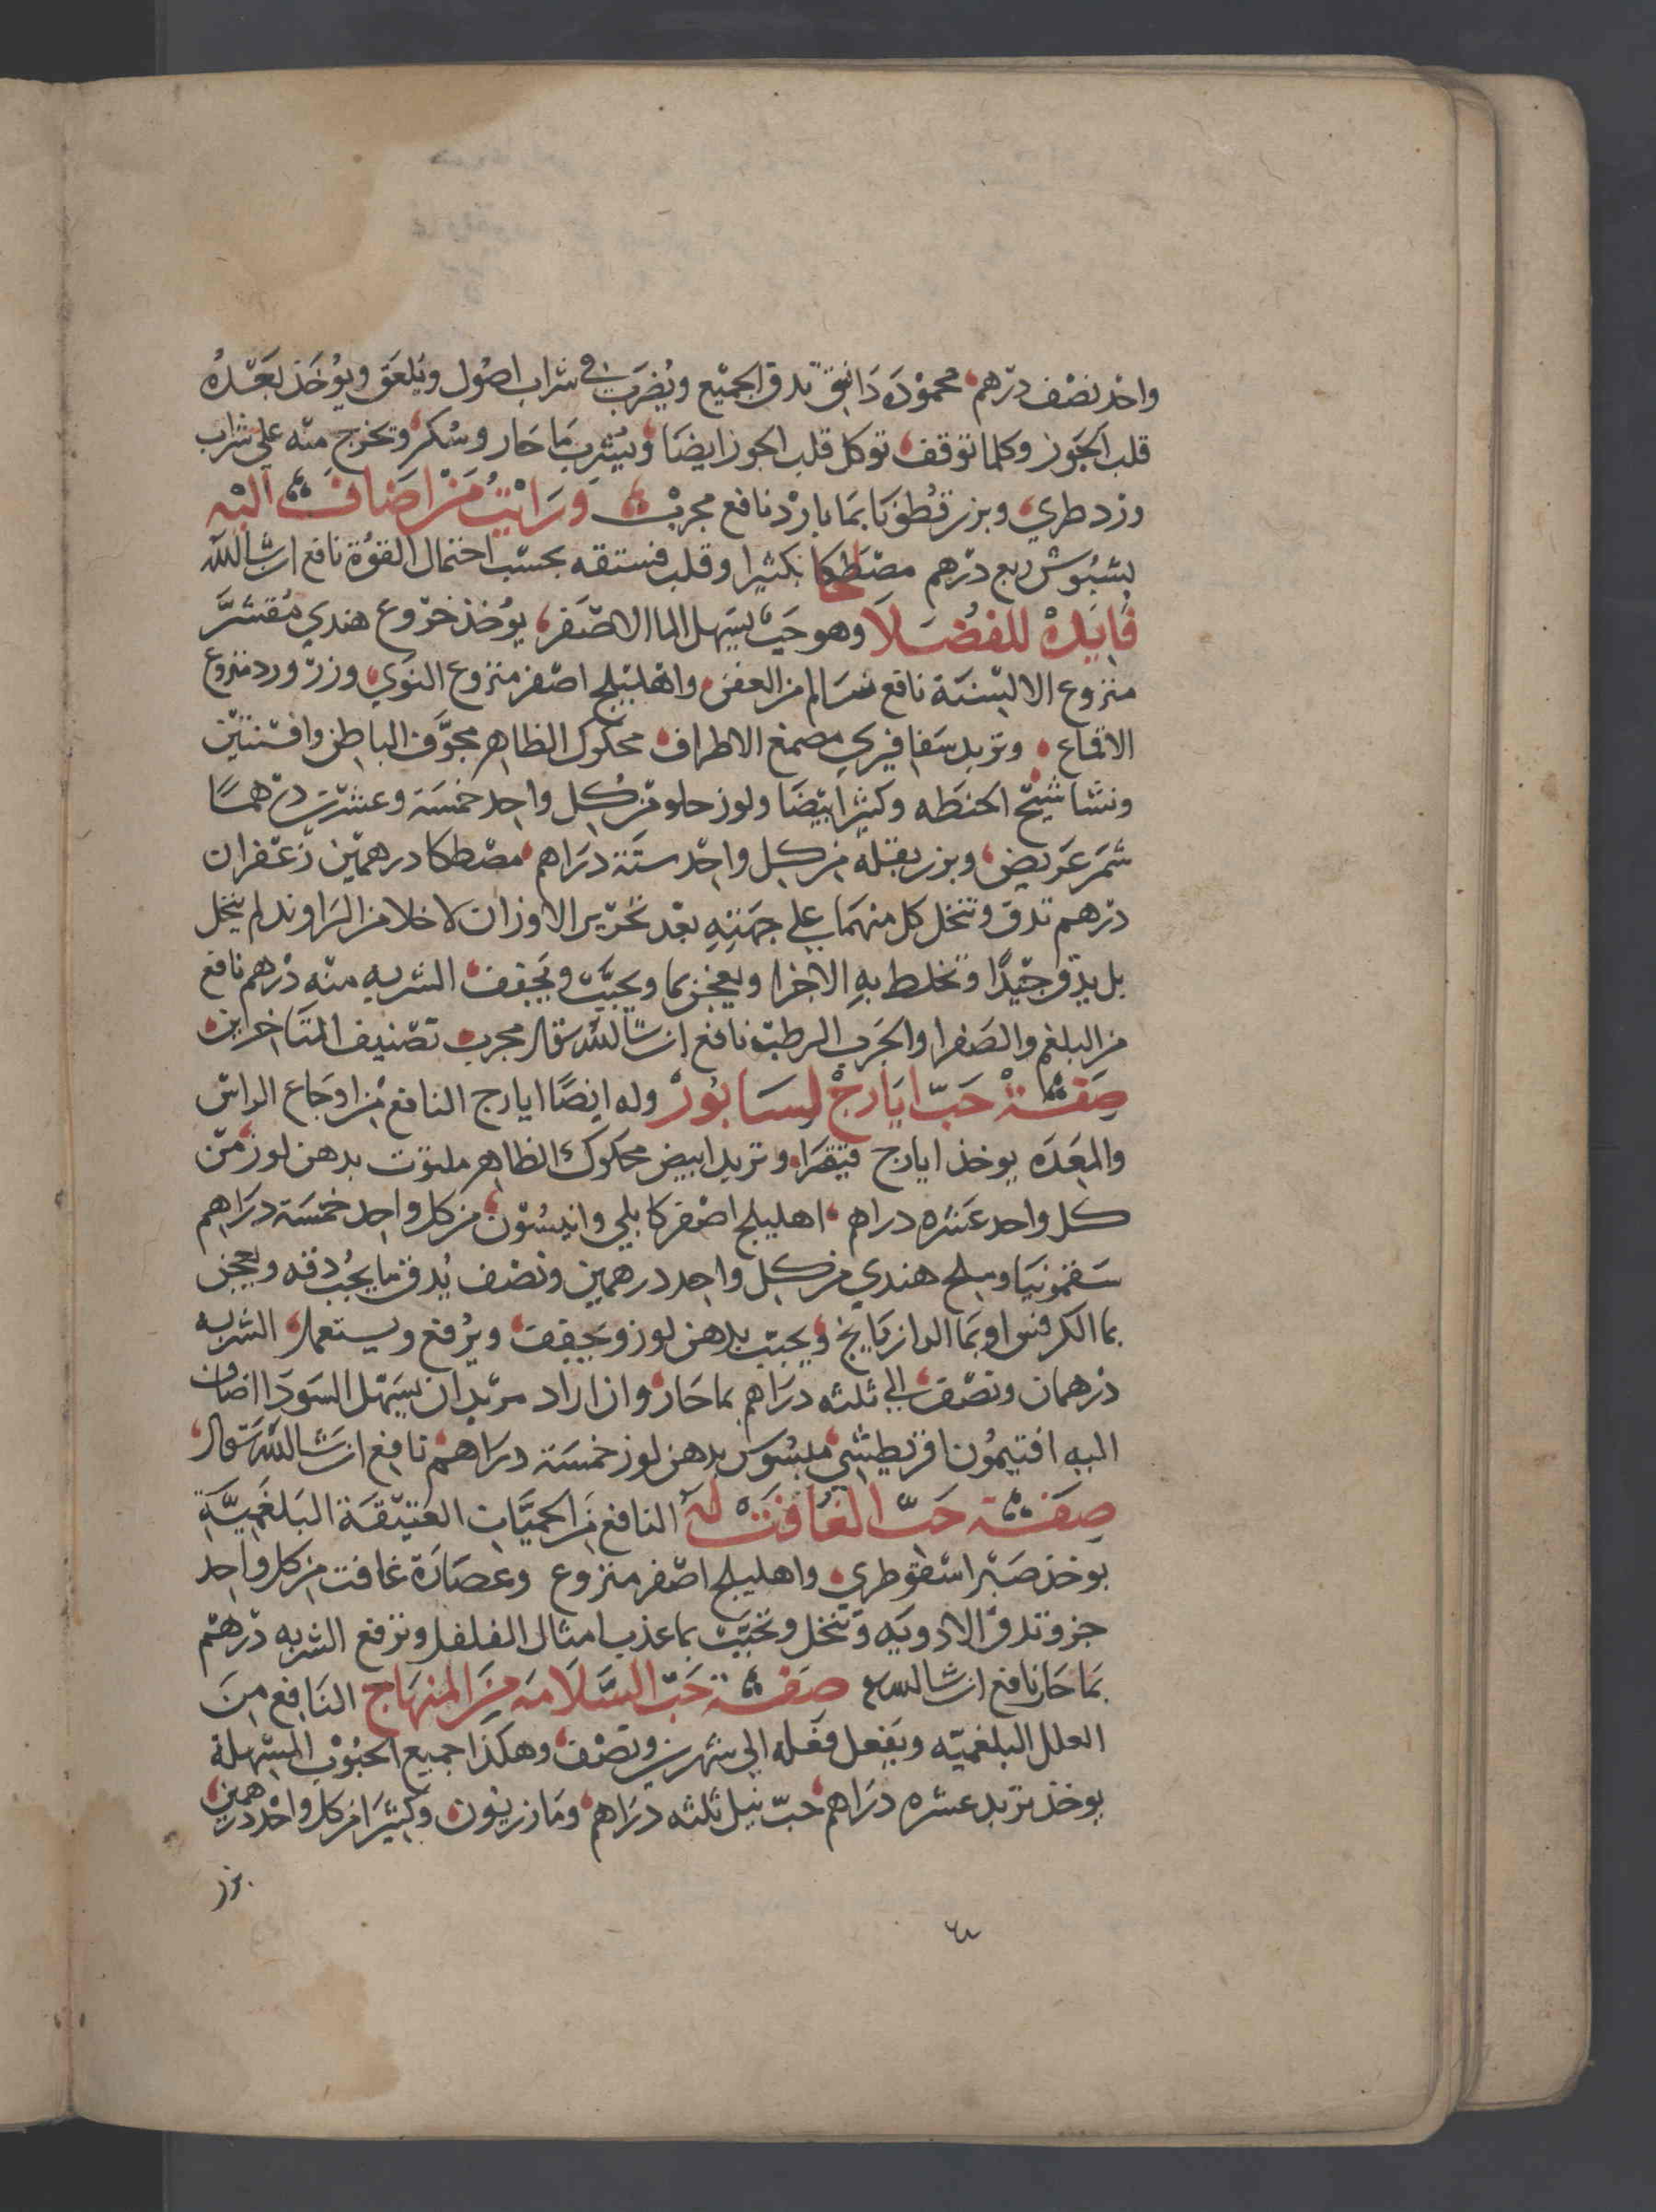 واحد نصف درهم محموده دانق تدق الجميع ويضرب في شراب اصول ويلعق ويوخذ بعده
قلب الجوز وكلما توقف توكل قلب الجوز ايضا ويشرب ما حار وسكر وتخرج منه علي شراب
ورد طري وبزر قطونا بما بارد نافع مجرب ورايت من اضاف اليه
بشبوش ربع درهم مصطكا كثيرا وقلب فستقه بحسب احتمال القوة نافع ان شا الله
فايدة للفضلا وهو حب يسهل الما الاصفر يوخذ خروع هندي مقشر
منزوع الالسنة نافع سالم من العفن واهليلج اصفر منزوع النوي وزر ورد منزوع
الاقماع وتربد مصمغ الاطراف محكوك الظاهر مجوف الباطن وافسنتين
ونشا شيح الحنطه وكثيرا بيضا ولوز حلو من كل واحد خمسة وعشرت درهما
شمر عريض وبزر بقله من كل واحد ستة دراهم مصطكا درهمين زعفران
درهم تدق وتنخل كل منهما علي جهته بعد تحرير الاوزان لا خلا من الراوند لم ينخل
بل يدق جيدا وتخلط به الاجزا ويعجن بما ويحبب ويجفف الشربه منه درهم نافع
من البلغم والصفرا والجرب الرطب نافع ان شا الله تعالى مجرب تصنيف المتاخرين
صفة حب ايارج لسابور وله ايضا ايارج النافع من اوجاع الراس
والمعده يوخذ ايارج فيقرا وتربد ابيض محكوك الظاهر ملتوت بدهن لوز من
كل واحد عشره دراهم اهليلج اصفر كابلي وانيسون من كل واحد خمسة دراهم
سقمونيا وملح هندي من كل واحد درهمين ونصف يدق ما يجب دقه ويعجن
بما الكرفس او بما الرازيانج ويحبب بدهن لوز ويجفف ويرفع ويستعمل الشربه
درهمان ونصف الي ثلثه دراهم بما حار وان اراد مريد ان يسهل السودا اضاف
اليه افتيمون اقريطشي ملبوس بدهن لوز خمسة دراهم نافع ان شا الله تعالى
صفة حب الغافت له النافع من الحميات العتيقة البلغمية
يوخذ صبر اسقوطري واهليلج اصفر منزوع وعصارة غافت من كل واحد
جزو تدق الادويه وتنخل وتحبب بما عذب امثال الفلفل وترفع الشربه درهم
بما حار نافع ان شا الله تع صفة حب السلامه من المنهاج النافع من
العلل البلغميه ويفعل فعله الي شهرين ونصف وهكذا جميع الحبوب المسهلة
يوخذ تربد عشره دراهم حب نيل ثلثه دراهم ومازريون وكثيرا من كل واحد درهمين
بزر